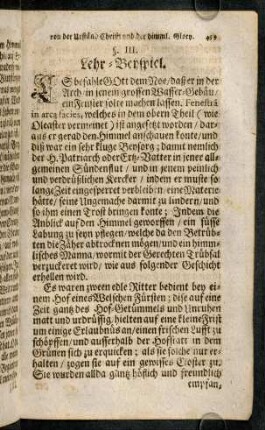 von der Urständ/ Christi und der himml. Glory.
§. III.
Lehr-Beyspiel.
ES befahle GOtt dem Noe/ daß er in der
Arch in jenem grossen Wasser-Gebäu/
ein Fenster solte machen lassen. Fenestrā
in arca facies, welches in dem obern Theil (wie
Oleaster vermeinet) ist angesetzt worden/ dar-
aus er gerad den Himmel anschauen konte/ und
diß war ein sehr kluge Beysorg; damit nemlich
der H. Patriarch oder Ertz-Vatter in jener all-
gemeinen Sündenflut/ und in jenem peinlich
und verdrüßlichen Kercker/ indem er muste so
lange Zeit eingesperret verbleiben/ eine Materie
hätte/ seine Ungemache darmit zu lindern/ und
so ihm einen Trost bringen konte; Indem die
Anblick auf den Himmel geworffen/ ein süsse
Labung zu seyn pflegen/ welche da den Betrüb-
ten die Zäher abtrocknen mögen/ und ein himm-
lisches Manna/ wormit der Gerechten Trübsal
verzuckeret wird/ wie aus folgender Geschicht
erhellen wird.
Es waren zween edle Ritter bedient bey ei-
nem Hof eines Welschen Fürsten; dise auf eine
Zeit gantz des Hof-Getümmels und Unruhen
matt und urdrüssig/ hielten auf eine kleine Frist
um einige Erlaubnus an/ einen frischen Lufft zu
schöpffen/ und ausserhalb der Hofstatt in dem
Grünen sich zu erquicken; als sie solche nur er-
halten/ zogen sie auf ein gewisses Closter zu.
Sie wurden allda gantz höflich und freundlich
empfan-